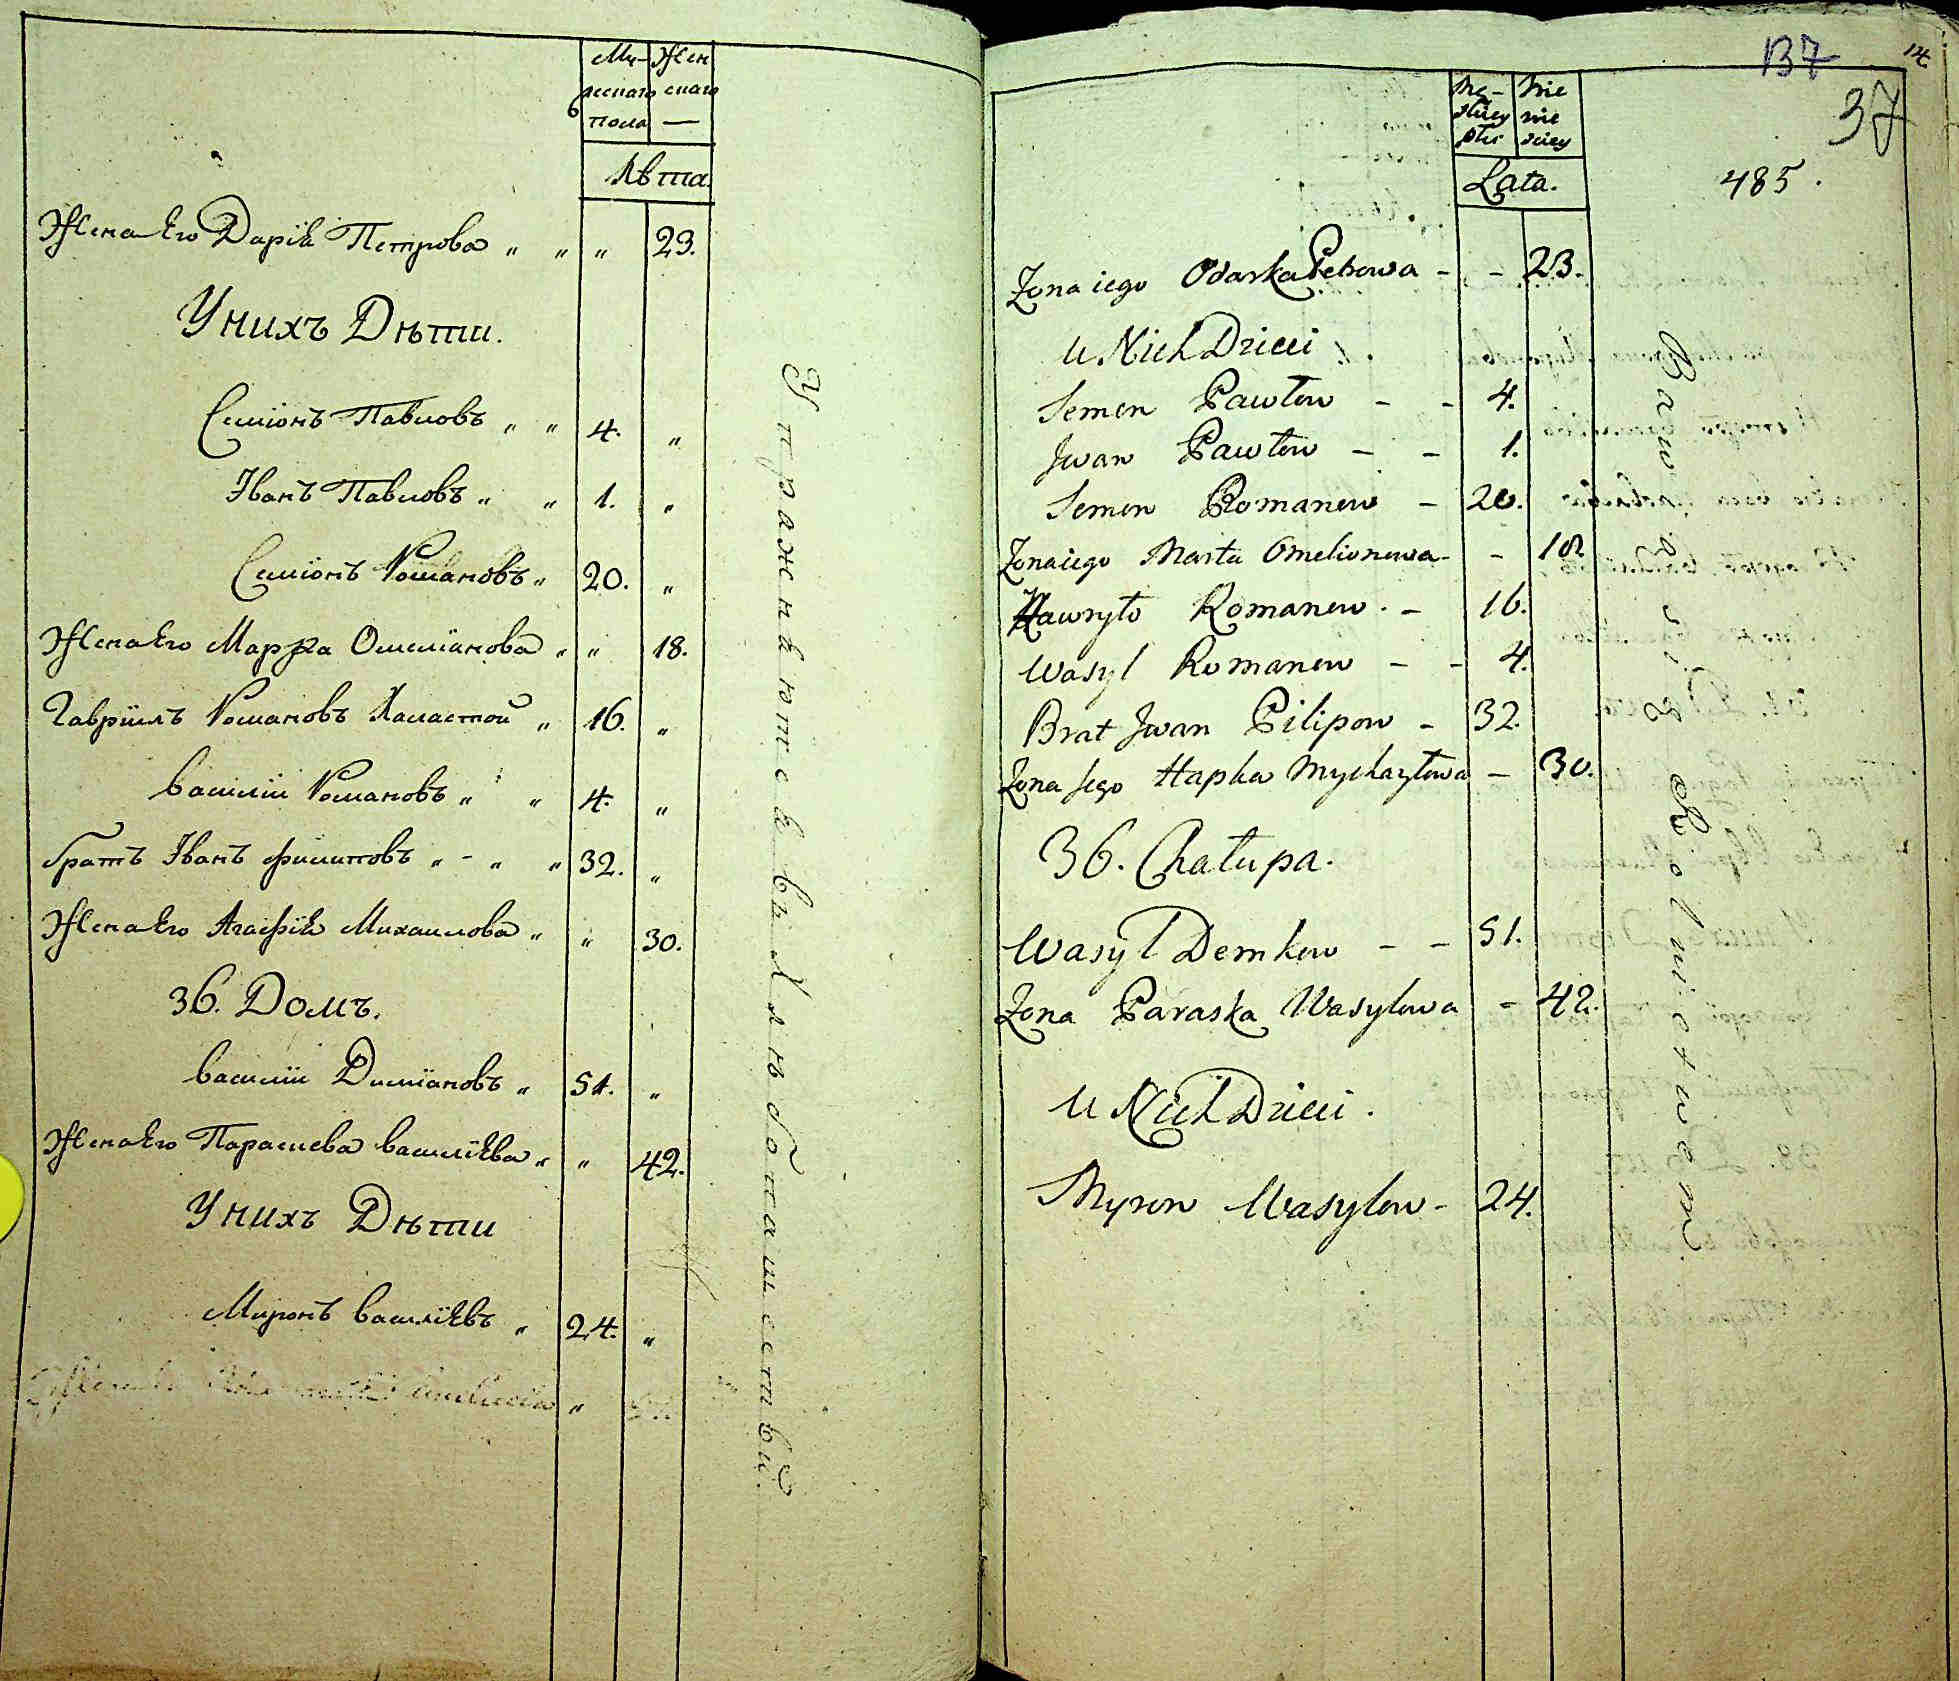 Му-
жескаго
пола
Жен
скаго
—
Лѣта.
Жена Его Дарія Петрова „ „ „ 23.
У нихъ Дѣти.
Симіонъ Павловъ „ „ 4. „
Іванъ Павловъ „ „ 1. „
Симіонъ Романовъ „ 20. „
Жена Его Марѳа Омеліанова „ „ 18.
Гавріилъ Романовъ Халастой „ 16. „
Василій Романовъ „ „ 4. „
братъ Іванъ Филиповъ „ - „ „ 32. „
Жена Его Агафія Михаилова „ „ 30.
36. Домъ.
Василій Диміановъ „ 51. „
Жена Его Параскева Василіева „ „ 42.
У нихъ Дѣти
Миронъ Василіевъ „ 24. „
Упражняются въ Хлѣбопашествѣ.
137
14
37
Mę-
skiey
płci
Nie
wie
sciey
Lata.
485.
Zona iego Odarka Petrowa - - 23.
U Nich Dzieci
Semen Pawłow - - 4.
Jwan Pawłow - - 1.
Semen Romanow - 20.
Zona iego Marta Omelionowa - - 18
Hawryło Romanow - 16.
Wasyl Romanow - - 4.
Brat Jwan Pilipow - 32.
Zona Jego Hapka Mychayłowa - 30.
36. Chałupa.
Wasyl Demkow - - 51.
Zona Paraska Wasylowa - 42.
U Nich Dzieci.
Myron Wasylow - 24.
Bawi się Rolnictwem